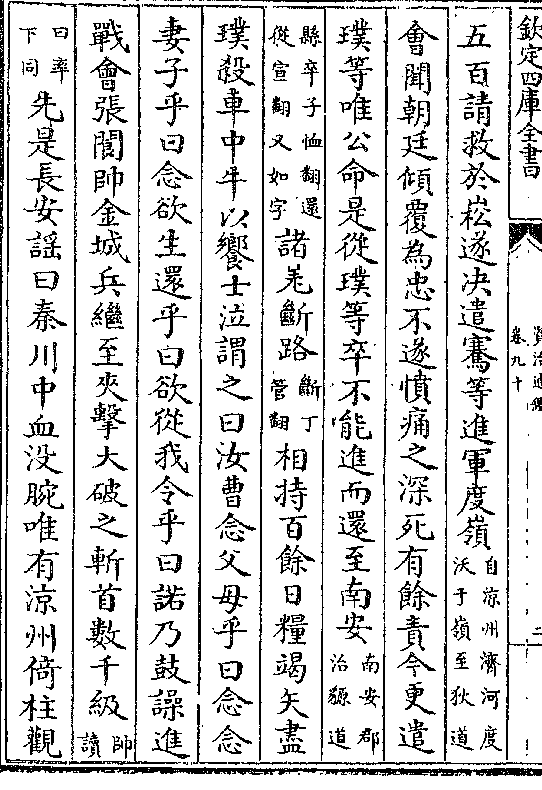 欽定四庫全書
資治通鑑
卷九十
二
五百請救於崧遂決遣騫等進軍度嶺自涼州濟河度沃于嶺至狄道
會聞朝廷傾覆為忠不遂憤痛之深死有餘責今更遣
璞等唯公命是從璞等卒不能進而還至南安南安郡治䝠道
縣卒子恤翻還從宣翻又如字諸羌斷路斷丁管翻相持百餘日糧竭矢盡
璞殺車中牛以饗士泣謂之曰汝曹念父母乎曰念念
妻子乎曰念欲生還乎曰欲從我令乎曰諾乃鼓譟進
戰會張閬帥金城兵繼至夾擊大破之斬首數千級帥讀
曰率下同先是長安謡曰秦川中血没腕唯有涼州倚柱觀